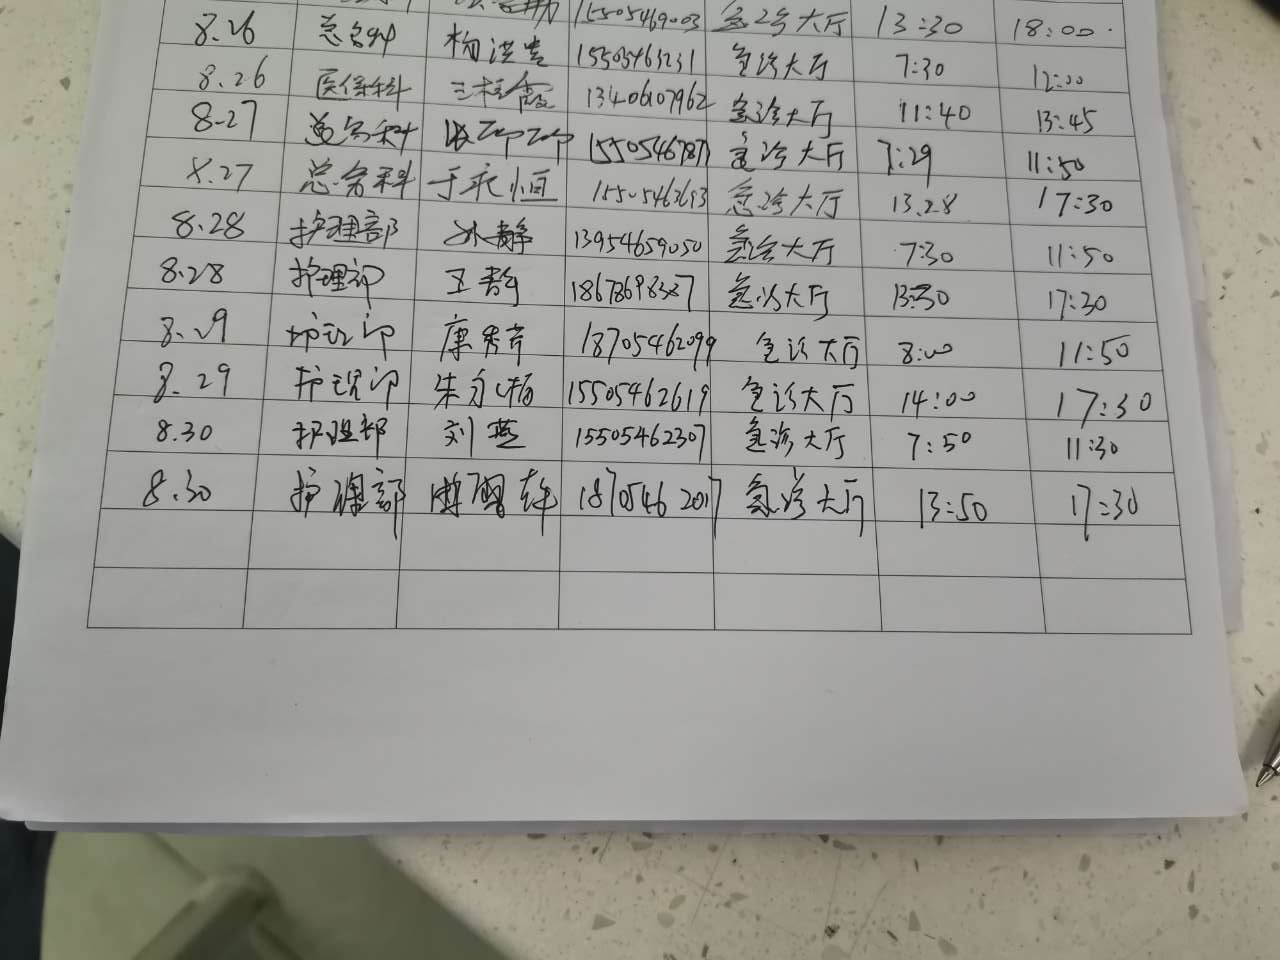 15505469003 急诊大厅 13:30 18:00
8.26 总务科 杨洪 15505463231 急诊大厅 7:30 12:00
8.26 医保科 王桂霞 13406107962 急诊大厅 11:40 13:45
8-27 总务科 急诊大厅 7:29 11:50
8.27 总务科 于永恒 急诊大厅 13.28 17:30
8.28 护理部 孙静 13954659050 急诊大厅 7:30 11:50
8.28 护理部 王静 急诊大厅 13:30 17:30
8.29 护理部 康秀芹 18705462099 急诊大厅 8:00 11:50
8.29 护理部 朱永梅 15505462619 急诊大厅 14:00 17:30
8.30 护理部 刘燕 15505462307 急诊大厅 7:50 11:30
8.30 护理部 18705462017 急诊大厅 13:50 17:30